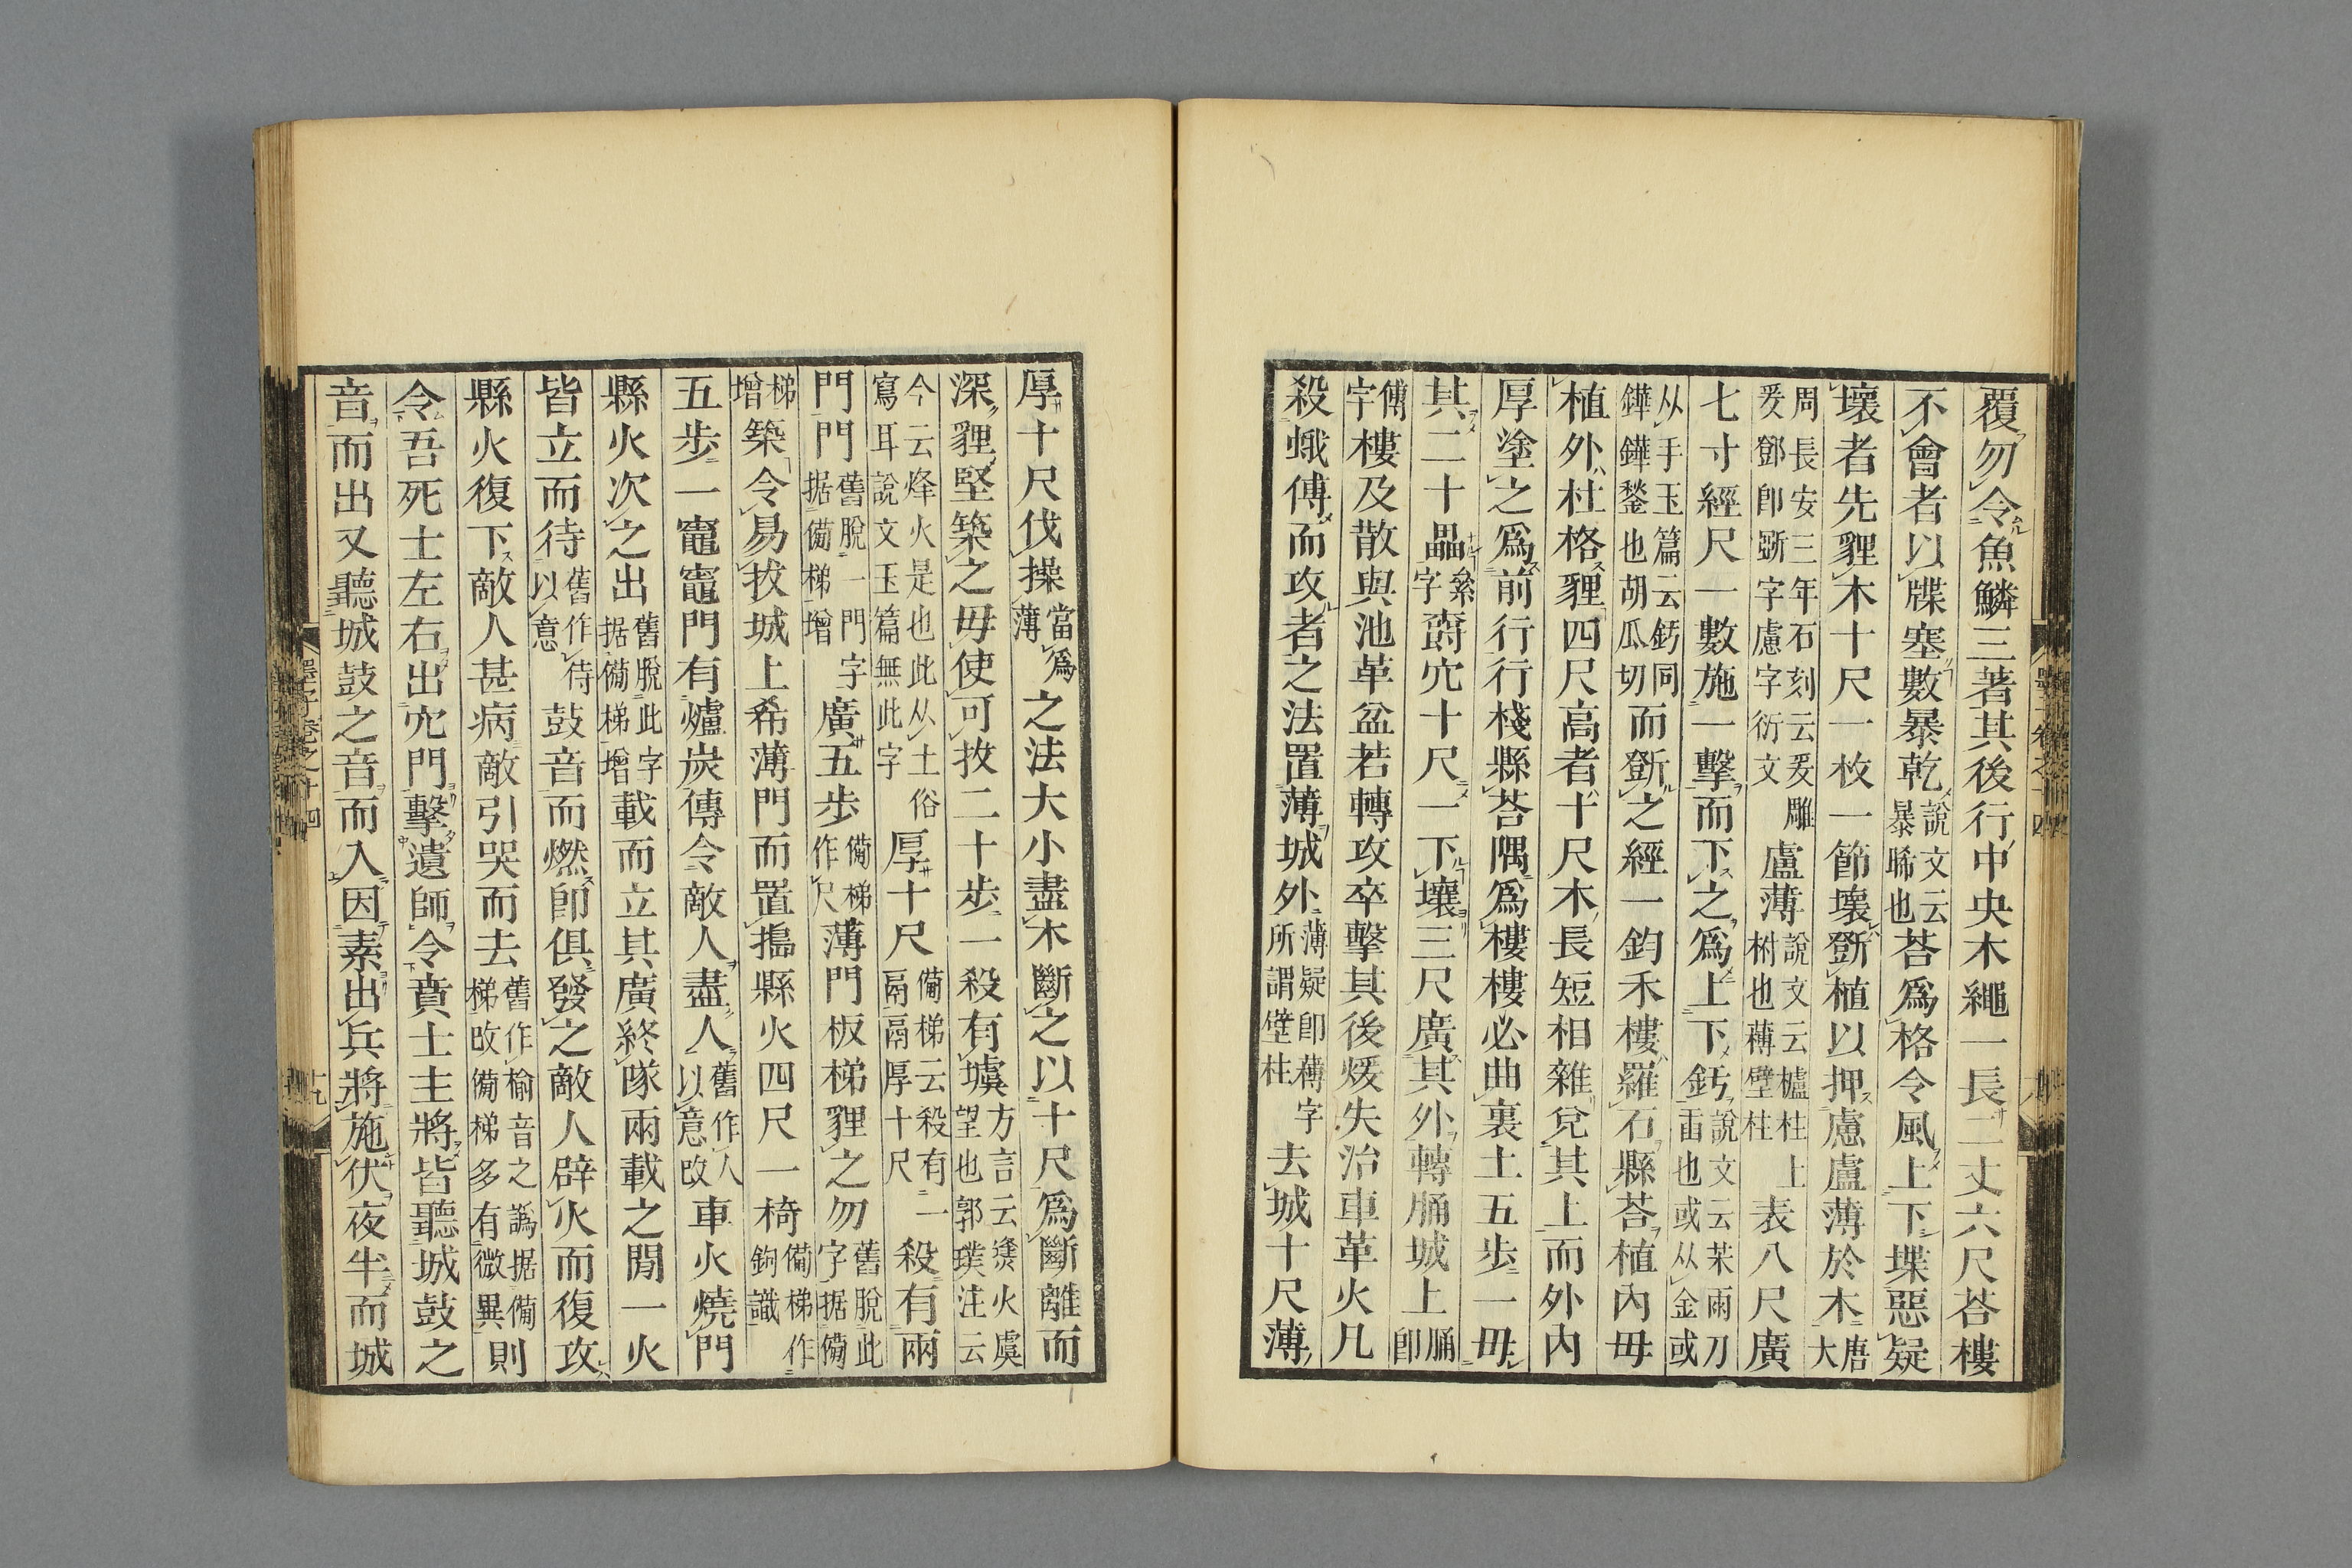 覆勿令魚鱗三著其後行中央木繩一長二丈六尺荅樓
不會者以牒塞數暴乾說文云暴晞也荅爲格令風上下堞惡疑
壞者先貍木十尺一枚一節壞斵植以押慮盧薄於木唐大
周長安三年石刻云爰雕爰斵卽斲字慮字衍文盧薄說文云櫨柱上柎也薄壁柱表八尺廣
七寸經尺一數施一擊而下之爲上下釫說文云茉兩刃臿也或从金或
从手玉篇云釫同鏵鏵鍫也胡瓜切而斵之經一鈞禾樓羅石縣荅植內毋
植外杜格貍四尺高者十尺木長短相雜兌其上而外內
厚塗之爲前行行棧縣荅隅爲樓樓必曲裏土五步一毋
其二十畾絫字爵穴十尺一下壞三尺廣其外轉㬹城上㬹卽
傅字樓及散與池革盆若轉攻卒擊其後煖失治車革火凡
殺蛾傅而攻者之法置薄城外薄疑卽薄字所謂壁柱去城十尺薄
厚十尺伐操當爲薄之法大小盡木斷之以十尺爲斷離而
深貍堅築之毋使可拔二十步一殺有壚方言云㷭火虞望也郭璞注云
今云烽火是也此从土俗寫耳說文玉篇無此字厚十尺備梯云殺有一鬲鬲厚十尺殺有兩
門門舊脫一門字据備梯增廣五步備梯作尺薄門板梯貍之勿舊脫此字据備
梯增築令易拔城上希薄門而置搗縣火四尺一椅備梯作鉤識
五步一竈竈門有爐炭傳令敵人盡人舊作人以意改車火燒門
縣火次之出舊脫此字据備梯增載而立其廣終隊兩載之閒一火
皆立而待舊作侍以意鼓音而燃卽俱發之敵人辟火而復攻
縣火復下敵人甚病敵引哭而去舊作榆音之譌据備梯改備梯多有微異則
令吾死士左右出穴門擊遺師令賁士主將皆聽城鼓之
音而出又聽城鼓之音而入因素出兵將施伏夜半而城
墨子卷之十四
十九